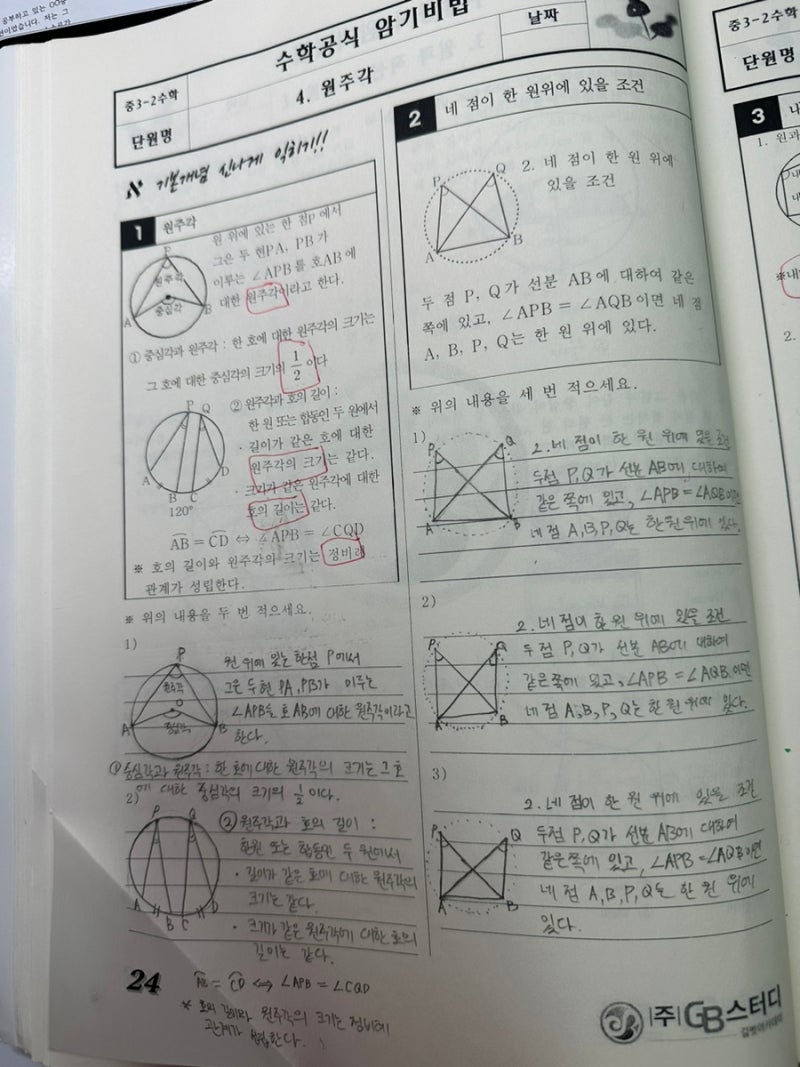 공부하고 있는 OO중
수학공식 암기비법
날짜
중3-2수학
4. 원주각
단원명
기본개념 신나게 익히기!!
1 원주각
원 위에 있는 한 점P 에서
그은 두 현PA, PB가
이루는 ∠APB를 호AB에
대한 원주각이라고 한다.
P
원주각
중심각
A
B
① 중심각과 원주각 : 한 호에 대한 원주각의 크기는
그 호에 대한 중심각의 크기의 1/2 이다
② 원주각과 호의 길이 :
한 원 또는 합동인 두 원에서
· 길이가 같은 호에 대한
원주각의 크기는 같다.
· 크기가 같은 원주각에 대한
호의 길이는 같다.
P Q
A B C D
120°
AB = CD ⇔ ∠APB = ∠CQD
※ 호의 길이와 원주각의 크기는 정비례
관계가 성립한다.
※ 위의 내용을 두 번 적으세요.
1)
P
원주각
O
중심각
A
B
원 위에 있는 한점 P에서
그은 두 현 PA, PB가 이루는
∠APB를 호 AB에 대한 원주각이라고
한다.
① 중심각과 원주각 : 한 호에 대한 원주각의 크기는 그 호
에 대한 중심각의 크기의 1/2 이다.
2)
P Q
A B C D
② 원주각과 호의 길이 :
한원 또는 합동인 두 원에서
· 길이가 같은 호에 대한 원주각의
크기는 같다.
· 크기가 같은 원주각에 대한 호의
길이는 같다.
AB = CD ⇔ ∠APB = ∠CQD
* 호의 길이와 원주각의 크기는 정비례
관계가 성립한다.
24
2 네 점이 한 원위에 있을 조건
P Q
A B
2. 네 점이 한 원 위에
있을 조건
두 점 P, Q가 선분 AB에 대하여 같은
쪽에 있고, ∠APB = ∠AQB이면 네 점
A, B, P, Q는 한 원 위에 있다.
※ 위의 내용을 세 번 적으세요.
1)
P Q
A B
2. 네 점이 한 원 위에 있을 조건
두점 P, Q가 선분 AB에 대하여
같은 쪽에 있고, ∠APB = ∠AQB이면
네 점 A, B, P, Q는 한 원 위에 있다.
2)
P Q
A B
2. 네 점이 한 원 위에 있을 조건
두 점 P, Q가 선분 AB에 대하여
같은쪽에 있고, ∠APB = ∠AQB이면
네 점 A, B, P, Q는 한 원 위에 있다.
3)
P Q
A B
2. 네 점이 한 원 위에 있을 조건
두점 P, Q가 선분 AB에 대하여
같은쪽에 있고, ∠APB = ∠AQB이면
네 점 A, B, P, Q는 한 원 위에
있다.
(주)GB스터디
중3-2수학
단원명
3
1. 원과
2.